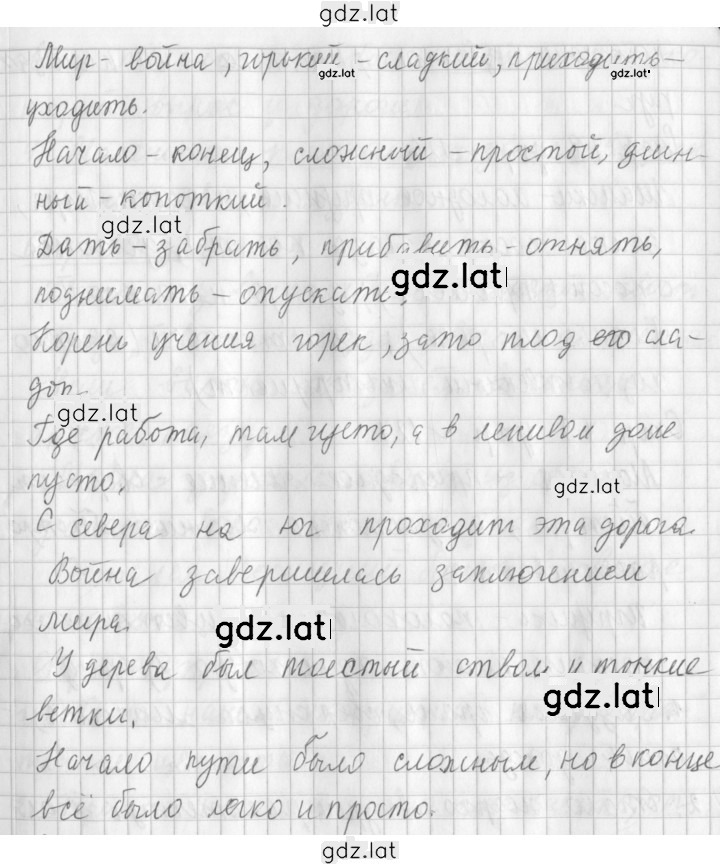 gdz.lat
Мир - война, горький - сладкий, приходить -
gdz.lat gdz.lat
уходить.
Начало - конец, сложный - простой, длин-
ный - копоткий.
gdz.lat
Дать - забрать, прибавить - отнять,
gdz.lat
поднимать - опускать.
Корень учения горек, зато плод его сла-
док.
gdz.lat
Где работа, там густо, а в ленивом доме
пусто.
gdz.lat
С севера на юг проходит эта дорога.
Война завершилась заключением
мира.
gdz.lat
У дерева был толстый ствол и тонкие
ветки.
gdz.lat
Начало пути было сложным, но в конце
всё было легко и просто.
gdz.lat